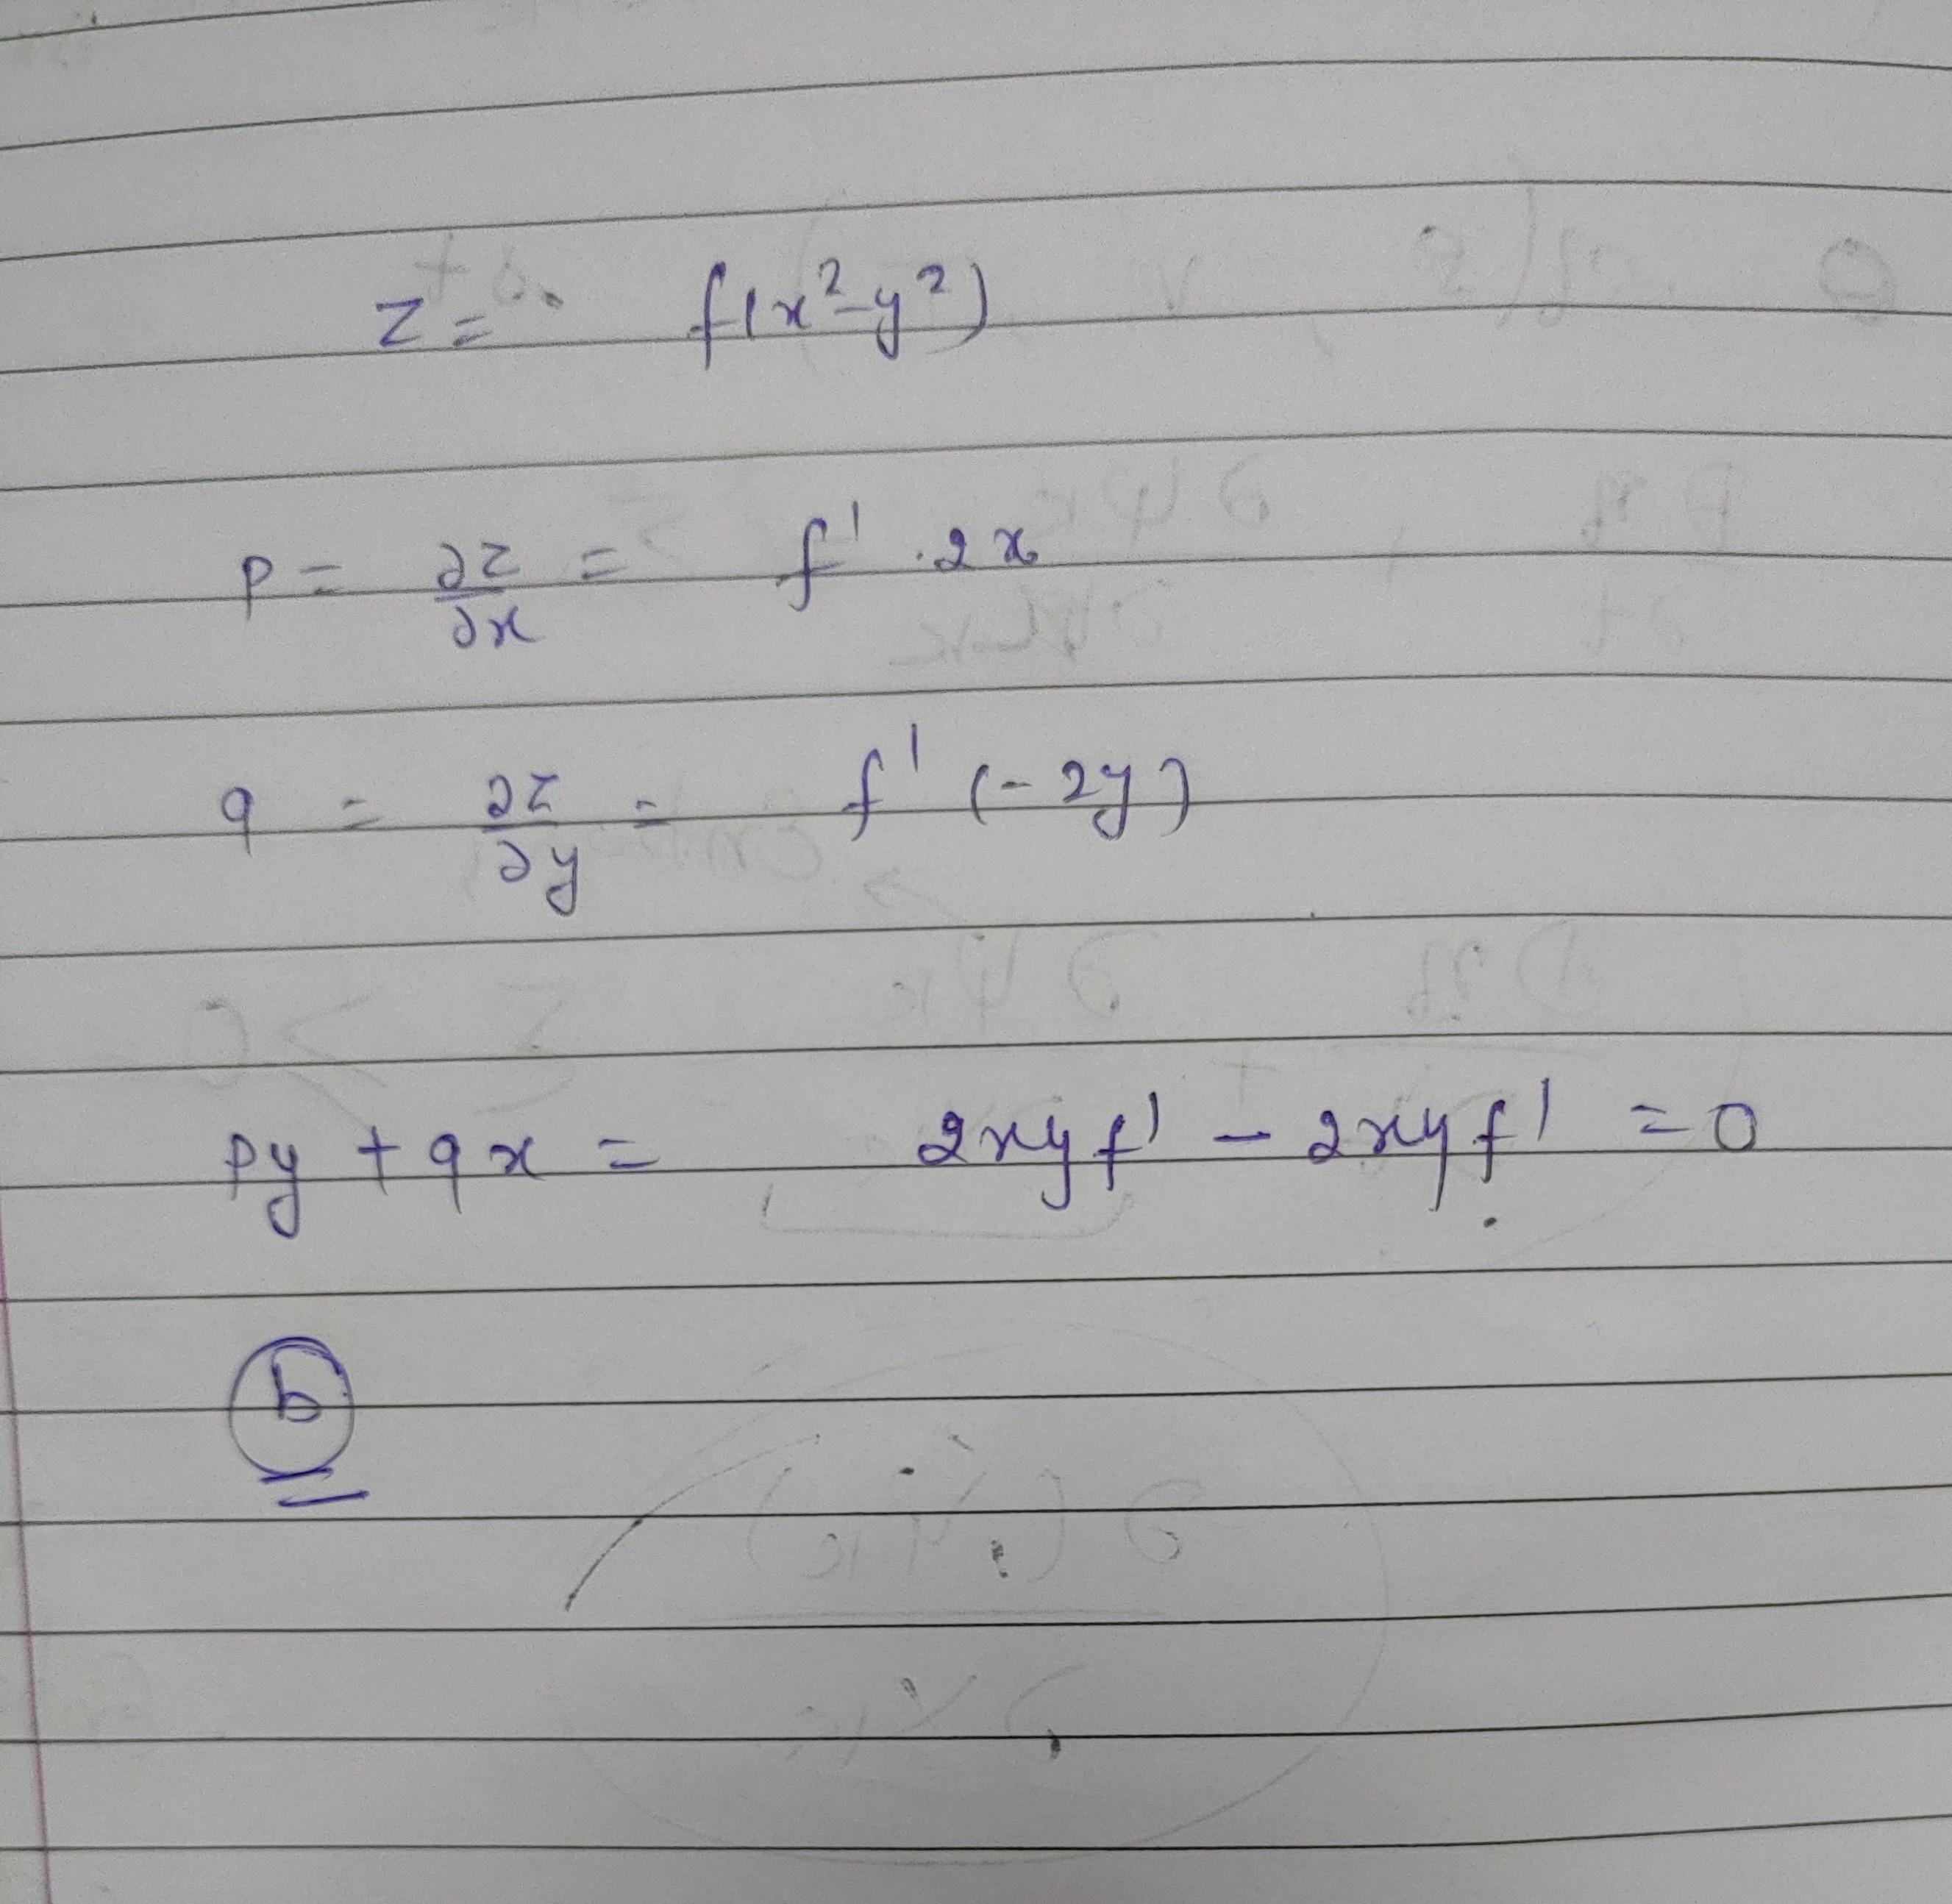 z = f(x²-y²)
p = ∂z/∂x = f' . 2x
q = ∂z/∂y = f' (-2y)
py + qx = 2xyf' - 2xyf' = 0
b